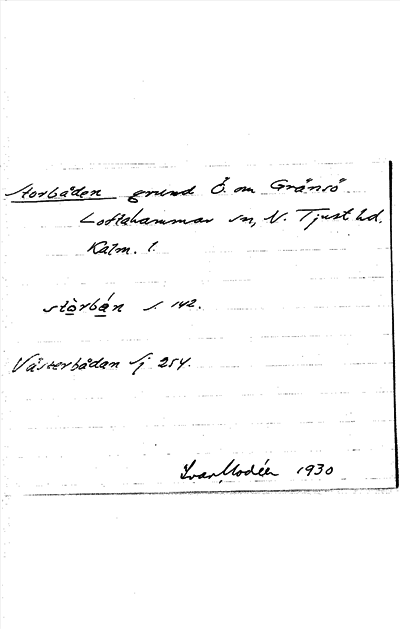 Storbåden grund Ö. om Gränsö
Loftahammar sn, N. Tjust hd.
Kalm. l.
stòrbán s. 142.
Västerbådan Sj. 254.
Ivar Modéer 1930